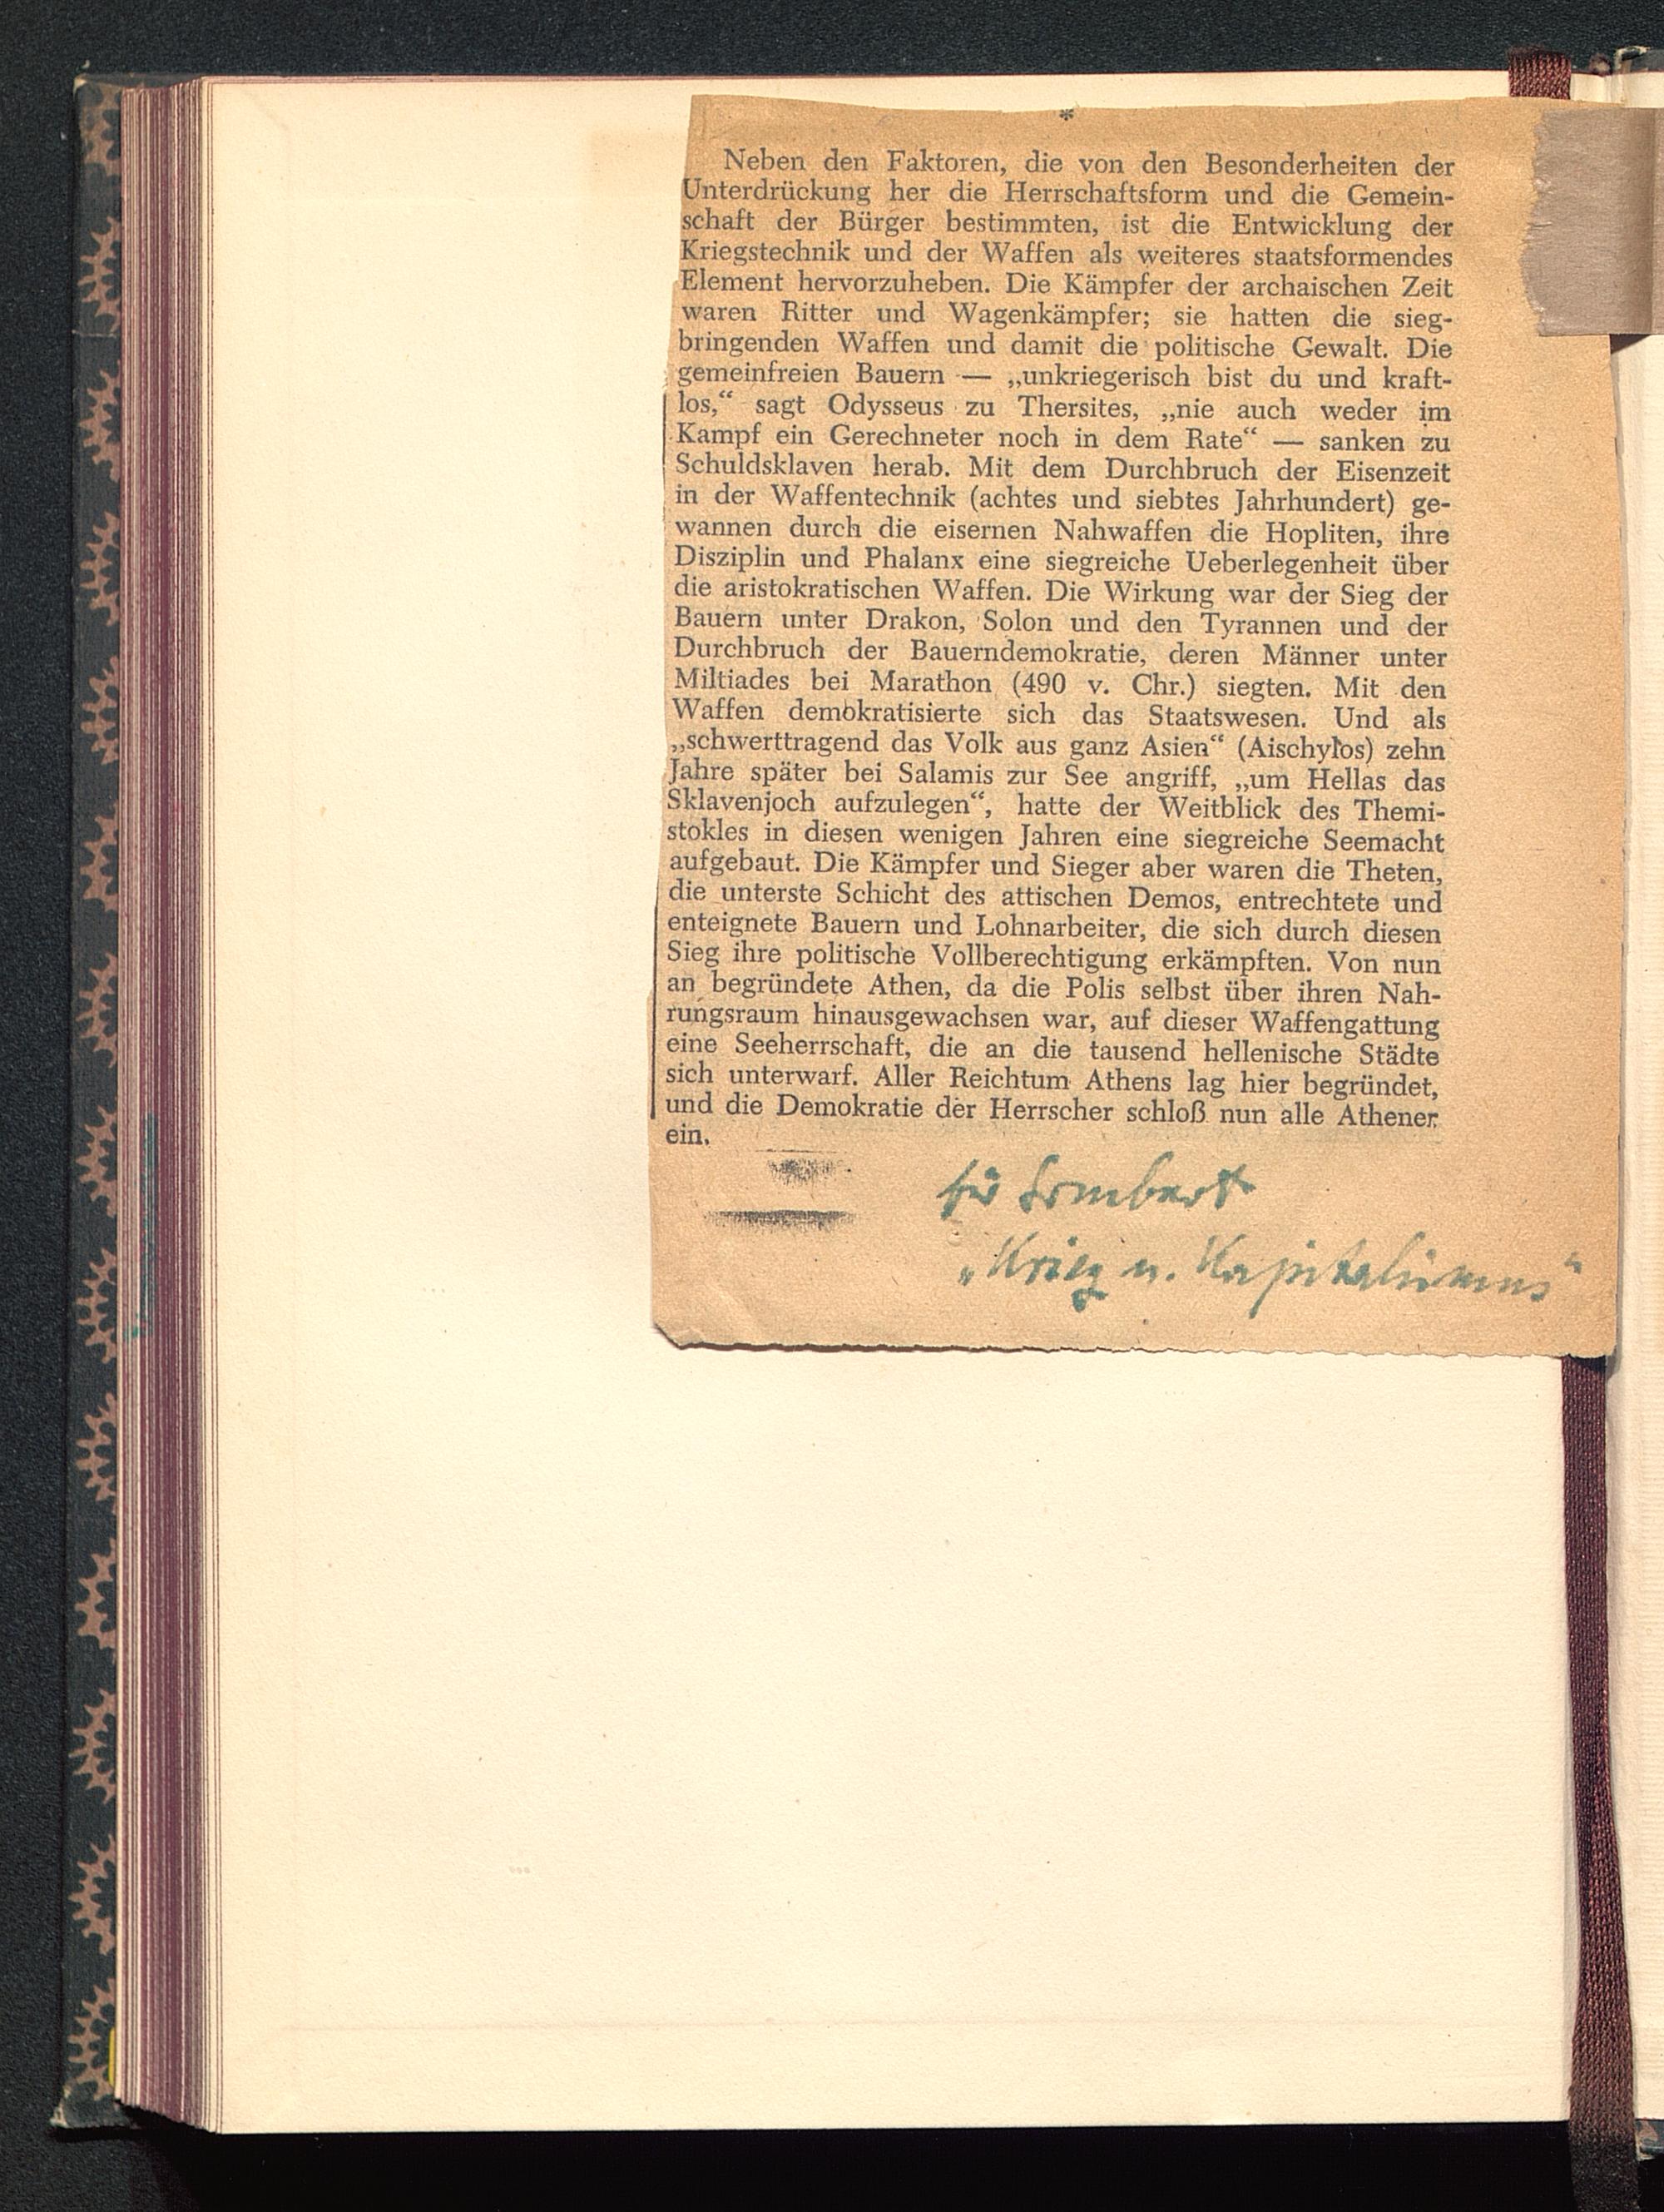 *
Neben den Faktoren, die von den Besonderheiten der
Unterdrückung her die Herrschaftsform und die Gemein-
schaft der Bürger bestimmten, ist die Entwicklung der
Kriegstechnik und der Waffen als weiteres staatsformendes
Element hervorzuheben. Die Kämpfer der archaischen Zeit
waren Ritter und Wagenkämpfer; sie hatten die sieg-
bringenden Waffen und damit die politische Gewalt. Die
gemeinfreien Bauern — „unkriegerisch bist du und kraft-
los,“ sagt Odysseus zu Thersites, „nie auch weder im
Kampf ein Gerechneter noch in dem Rate“ — sanken zu
Schuldsklaven herab. Mit dem Durchbruch der Eisenzeit
in der Waffentechnik (achtes und siebtes Jahrhundert) ge-
wannen durch die eisernen Nahwaffen die Hopliten, ihre
Disziplin und Phalanx eine siegreiche Ueberlegenheit über
die aristokratischen Waffen. Die Wirkung war der Sieg der
Bauern unter Drakon, Solon und den Tyrannen und der
Durchbruch der Bauerndemokratie, deren Männer unter
Miltiades bei Marathon (490 v. Chr.) siegten. Mit den
Waffen demokratisierte sich das Staatswesen. Und als
„schwerttragend das Volk aus ganz Asien“ (Aischylos) zehn
Jahre später bei Salamis zur See angriff, „um Hellas das
Sklavenjoch aufzulegen“, hatte der Weitblick des Themi-
stokles in diesen wenigen Jahren eine siegreiche Seemacht
aufgebaut. Die Kämpfer und Sieger aber waren die Theten,
die unterste Schicht des attischen Demos, entrechtete und
enteignete Bauern und Lohnarbeiter, die sich durch diesen
Sieg ihre politische Vollberechtigung erkämpften. Von nun
an begründete Athen, da die Polis selbst über ihren Nah-
rungsraum hinausgewachsen war, auf dieser Waffengattung
eine Seeherrschaft, die an die tausend hellenische Städte
sich unterwarf. Aller Reichtum Athens lag hier begründet,
und die Demokratie der Herrscher schloß nun alle Athener
ein.
für Sombart
„Krieg u. Kapitalismus“